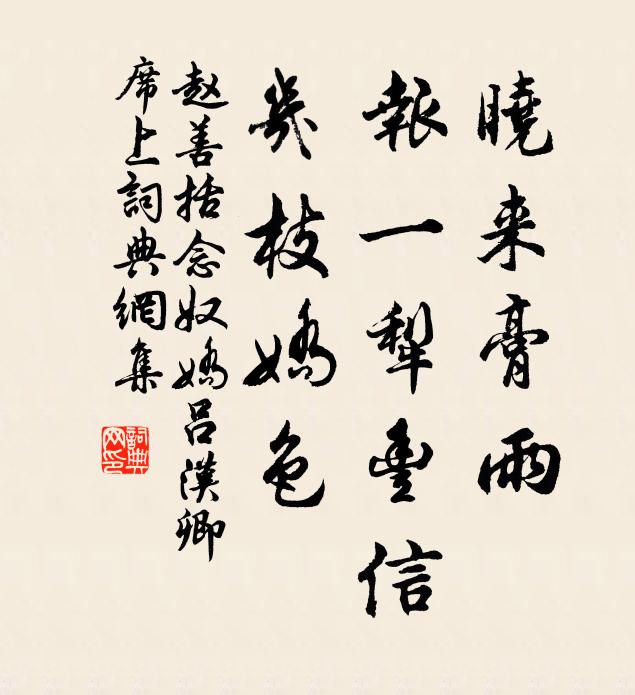 曉来膏雨
報一犁豐信
幾枝嬌色
趙善括念奴嬌吕漢卿
席上詞典網集
詞典网印